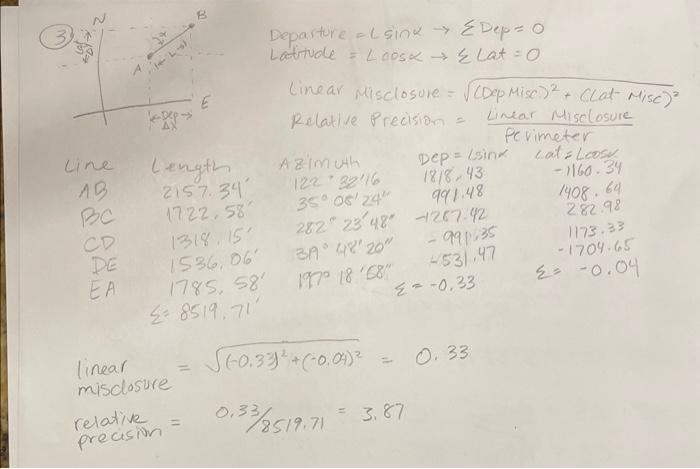 3
N
B
A
L
α
E
Lat
ΔY
←Dep→
ΔX
Departure = L sinα → Σ Dep = 0
Latitude = L cosα → Σ Lat = 0
Linear Misclosure = √(Dep Misc.)² + (Lat Misc)²
Relative Precision = Linear Misclosure / Perimeter
Line Length Azimuth Dep = Lsinα Lat = Lcosα
AB 2157.34' 122° 32'16 1818.43 -1160.34
BC 1722.58' 35° 08' 24" 991.48 1408.69
CD 1318.15' 282° 23' 48" -1287.42 282.98
DE 1536.06' 48' 20" -991.35 1173.33
EA 1785.58' 197° 18' 58" -531.47 -1704.65
Σ= 8519.71' Σ = -0.33 Σ= -0.04
linear misclosure = √(-0.33)² + (-0.04)² = 0.33
relative precision = 0.33/8519.71 = 3.87